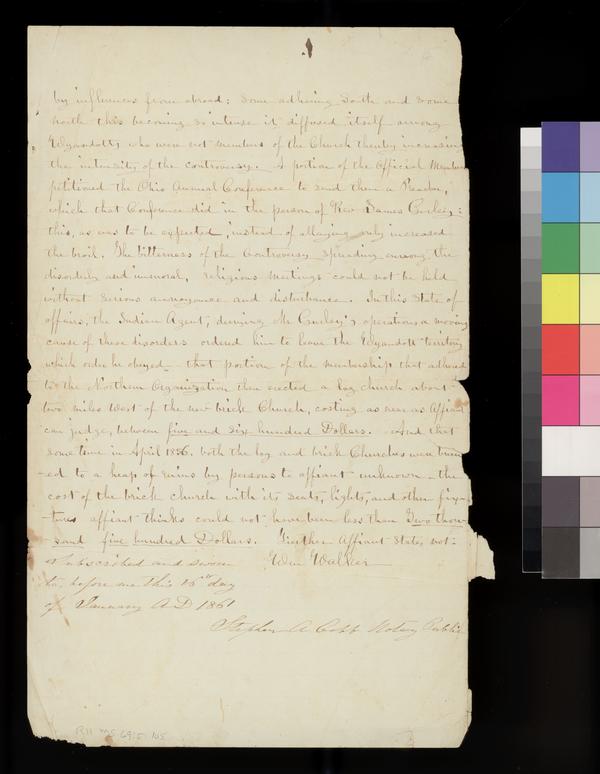 by influences from abroad: some adhering South and some
north this becoming so intense it diffused itself among
Wyandotts who were not members of the Church thereby increasing
the intensity of the controversy. A portion of the Official Members
petitioned the Ohio Annual Conference to send them a Preacher,
which that Conference did in the person of Rev James Gurley:
this, as was to be expected, instead of allaying only increased
the broil. The bitterness of the Controversy spreading among the
disorderly and immoral, religious meetings could not be held
without serious annoyance and disturbance. In this State of
affairs, the Indian Agent, deeming Mr Gurley's operations a moving
cause of these disorders ordered him to leave the Wyandott territory
which order he obeyed - that portion of the membership that adhered
to the Northern Organization then erected a log church about
two miles West of the new brick Church, costing as near as Affiant
can judge, between five and six hundred Dollars. And that
some time in April 1856. both the log and brick Churches were burn-
-ed to a heap of ruins by persons to affiant unknown - the
cost of the brick church with its seats, lights, and other fix-
-tures affiant thinks could not have been less than Two thou-
-sand five hundred Dollars. Further Affiant states not.
Subscribed and sworn Wm Walker
to, before me this 16th day
of January A D 1861
Stephen A Cobb Notary Public
RH MS 69:5.105